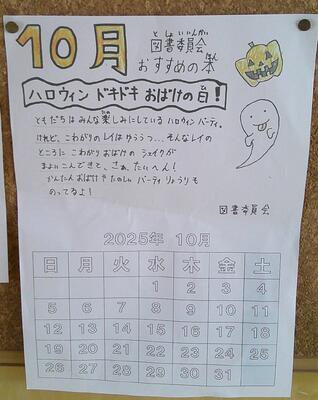 10月
としょいいんかい
図書委員会
おすすめの本
ハロウィン ドキドキ おばけの日！
ともだちはみんな楽しみにしている ハロウィンパーティー。
けれど、こわがりのレイはゆううつ…そんなレイの
ところに こわがりおばけの シェイクが
まよいこんできて、さぁ、たいへん！
かんたんおばけや たのしい パーティりょうりも
のってるよ！
図書委員会
2025年 10月
日 月 火 水 木 金 土
1 2 3 4
5 6 7 8 9 10 11
12 13 14 15 16 17 18
19 20 21 22 23 24 25
26 27 28 29 30 31